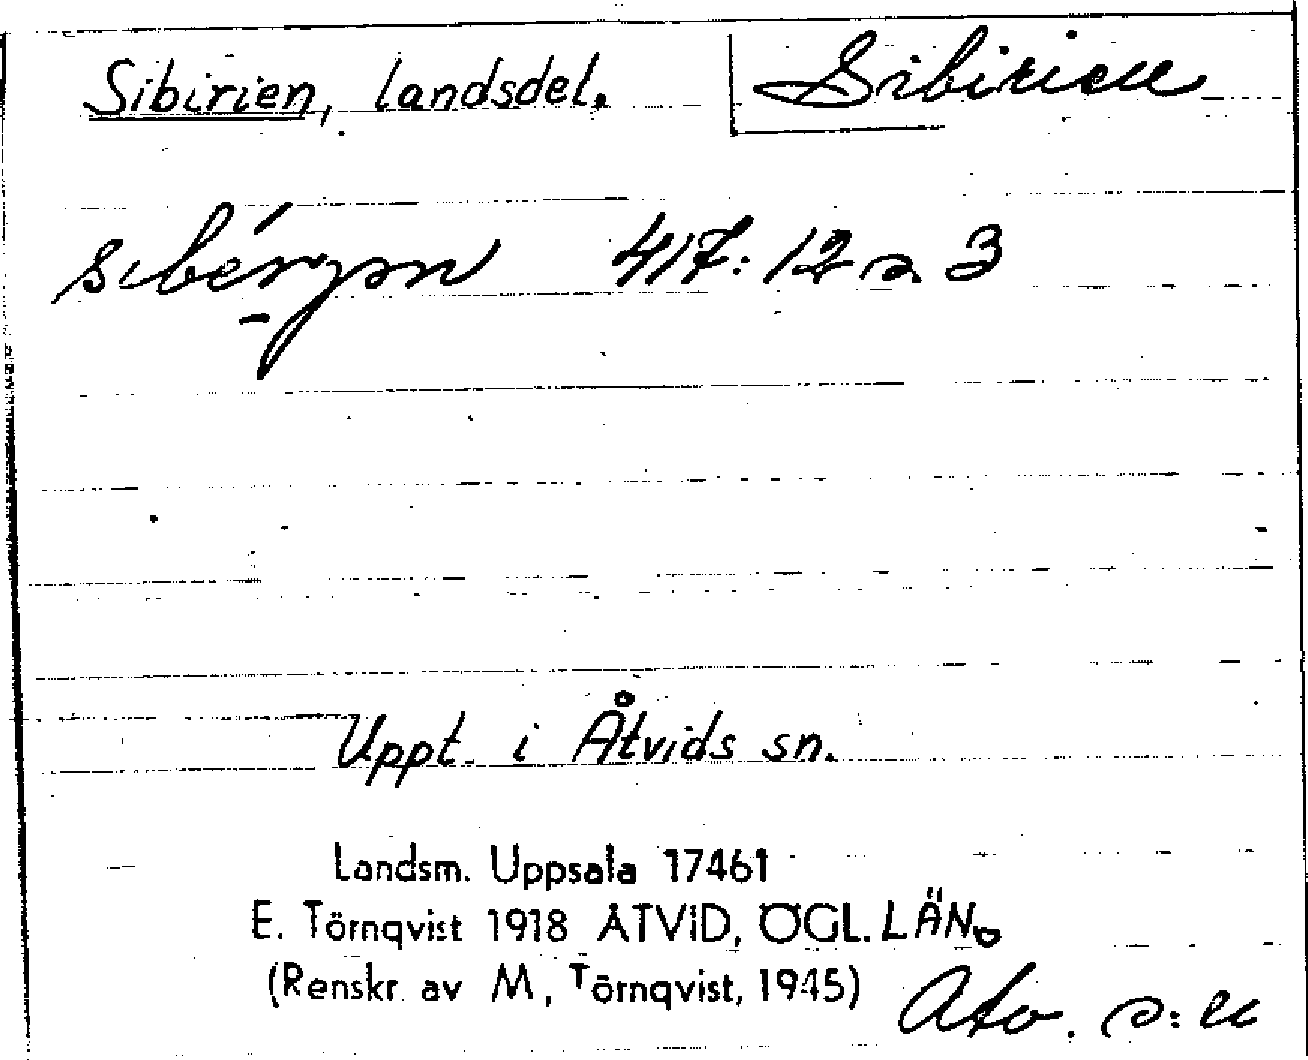 Sibirien, landsdel. Sibirien
sibérjən 417: 12 a 3
Uppt. i Åtvids sn.
Landsm. Uppsala 17461
E. Törnqvist 1918 ÅTVID, ÖGL. LÄN.
(Renskr. av M. Törnqvist, 1945)
Åtv. s:n